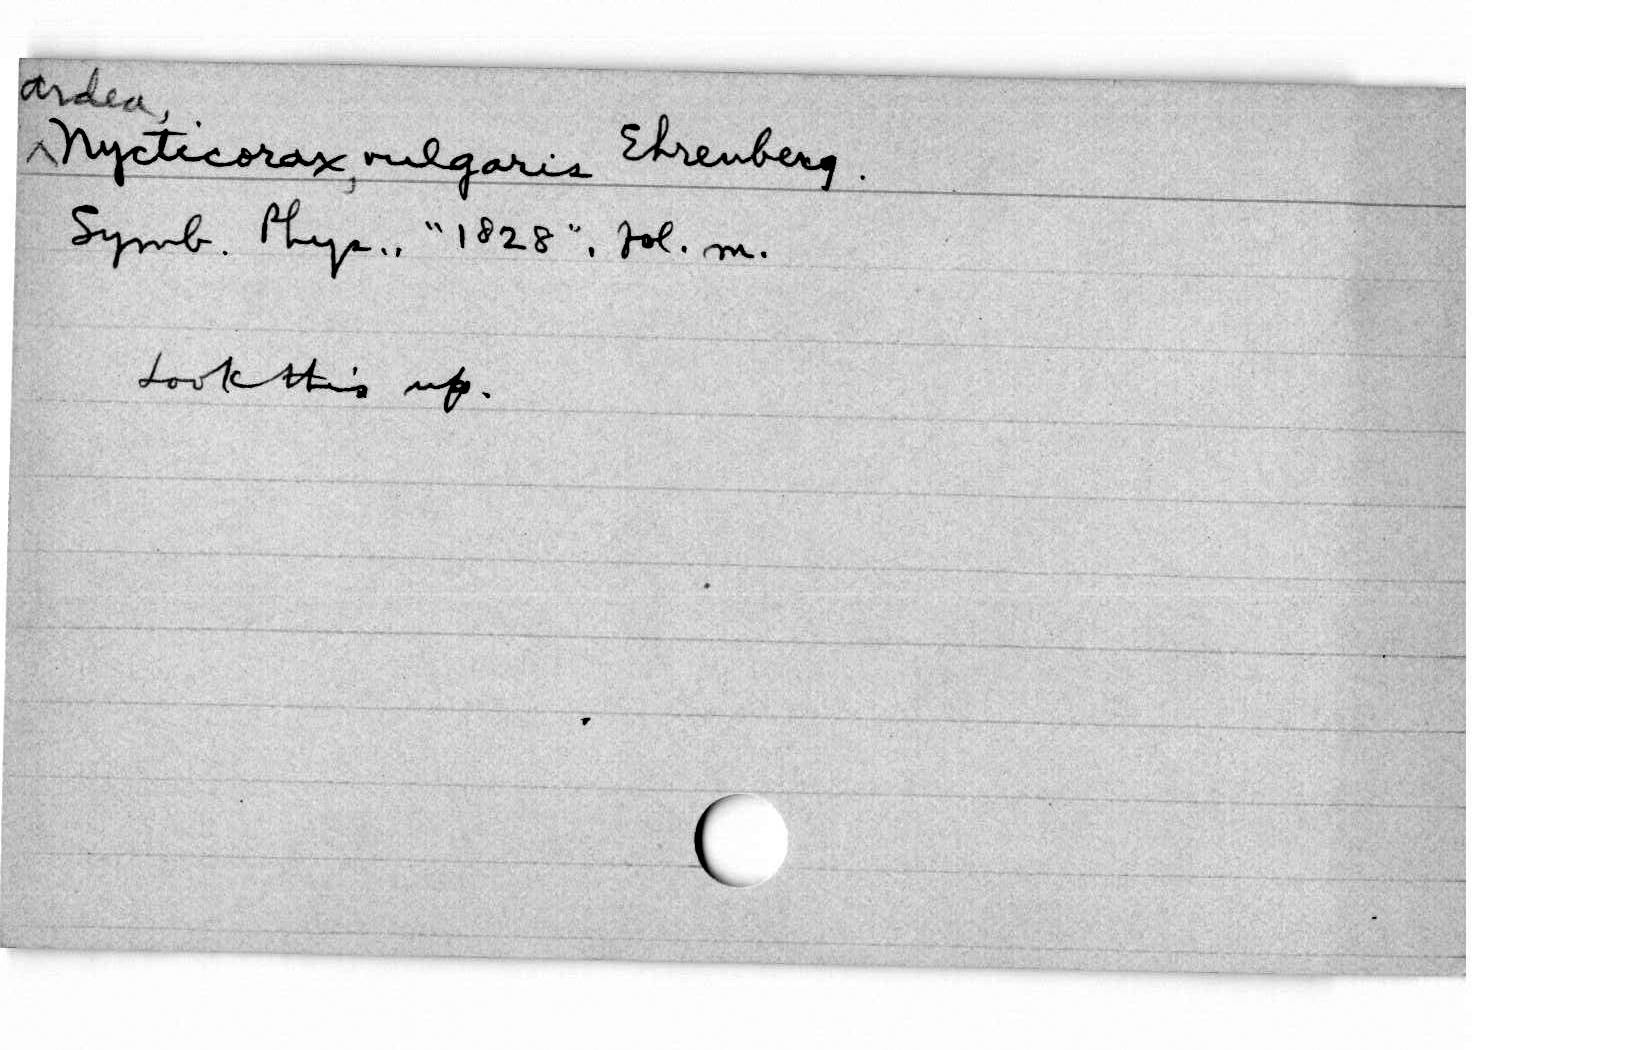 Ardea,
^Nycticorax, vulgaris Ehrenberg.
Symb. Phys., "1828", fol. m.
Look this up.